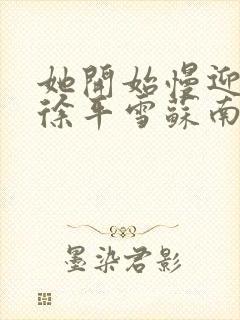 她開始慢迎
徐平雪蘇南
墨染君影